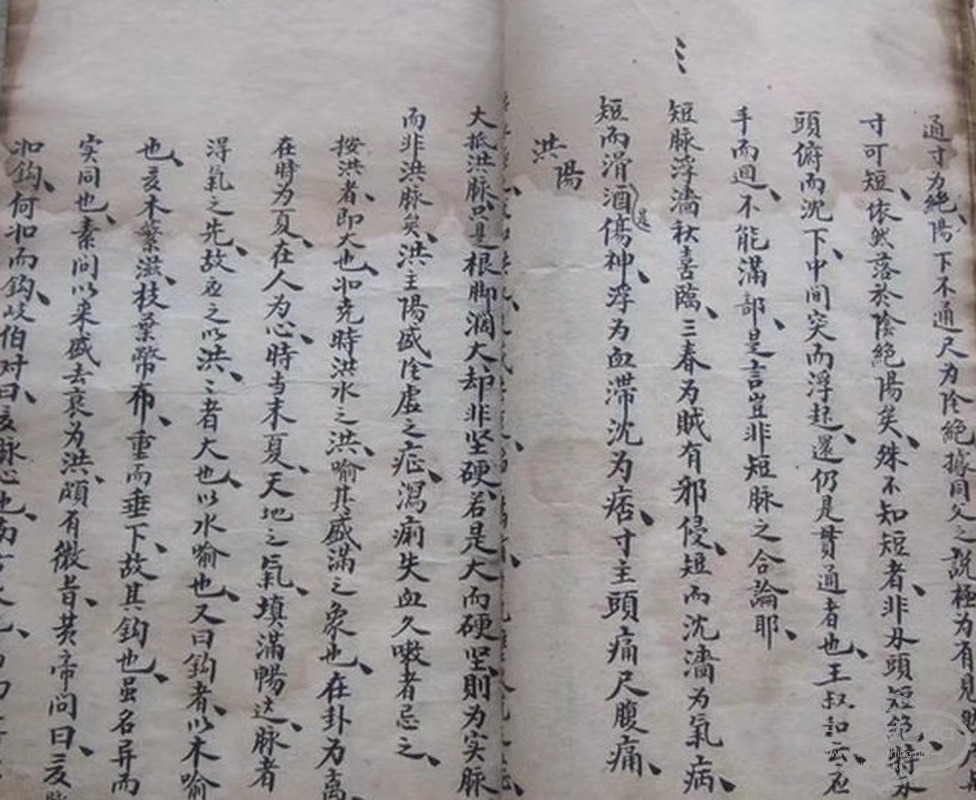 通寸為絕陽下不通尺為陰絕據同父之說極為有見
寸可短依然落於陰絕陽矣殊不知短者非毋頭短絕特
頭俯而沈下中間突而浮起還仍是貫通者也王叔和云应
手而迴不能滿部是言豈非短脉之合論耶
短脉浮濇秋喜臨三春为贼有邪侵短而沉濇为氣病
短而滑酒傷神浮为血滞沈为痞寸主頭痛尺腹痛
洪陽
大抵洪脉只是根脚濶大却非坚硬若是大而硬坚則为实脉
而非洪脉矣洪主陽盛陰虚之症瀉痢失血久嗽者忌之
按洪者即大也如尭時洪水之洪喻其盛滿之象也在卦为离
在時为夏在人为心時当末夏天地之氣填滿暢达脉者
得氣之先故应之以洪之者大也以水喻也又曰鈎者以木喻
也夏木蘩滋枝葉幣布重而垂下故其鈎也虽名异而
实同也素問以来盛去衰为洪頗有微旨黄帝問曰夏脉
如鈎何如而鈎岐伯对曰夏脉心也南方火也